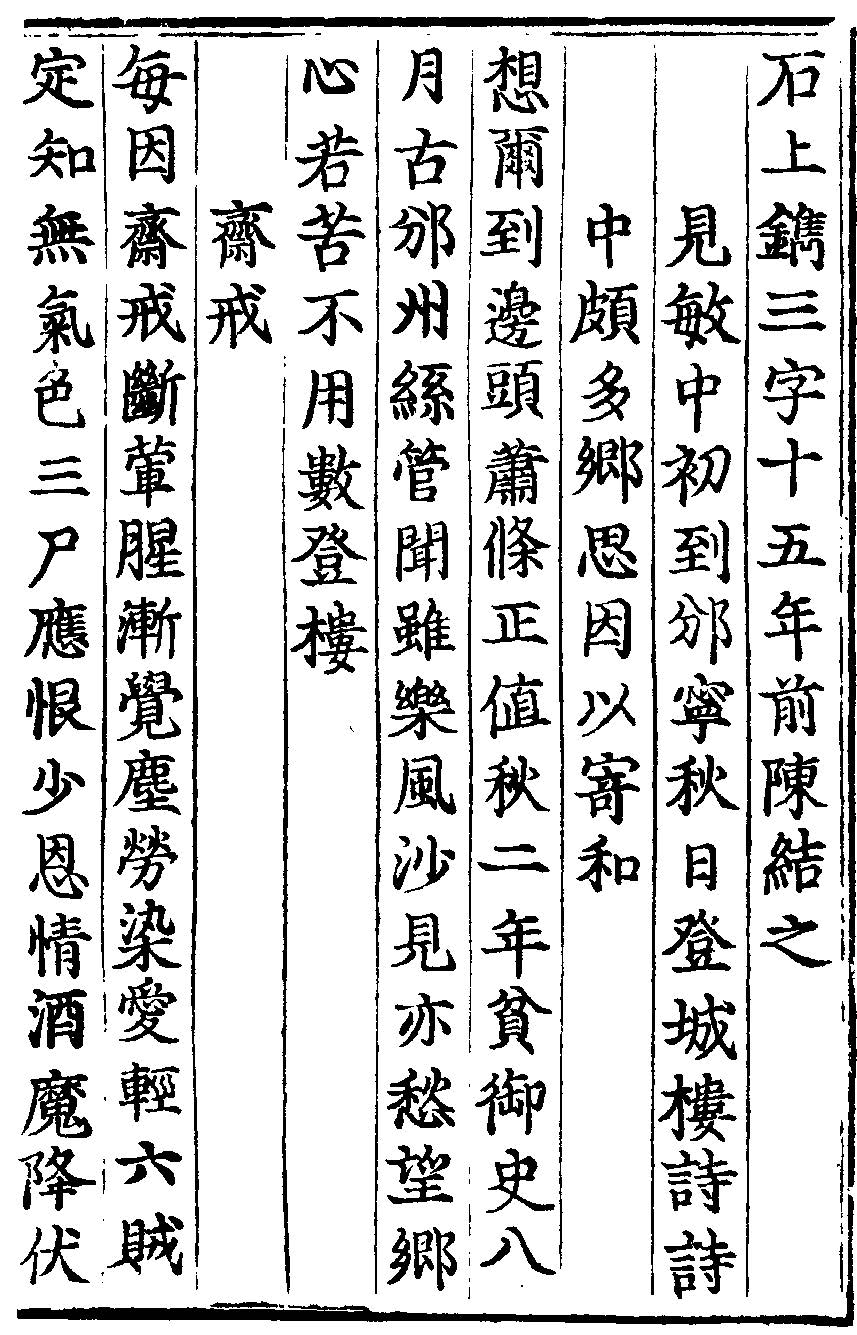 石上鐫三字十五年前陳結之
見敏中初到邠寧秋日登城樓詩詩
中頗多鄉思因以寄和
想爾到邊頭蕭條正值秋二年貧御史八
月古邠州絲管聞雖樂風沙見亦愁望鄉
心若苦不用數登樓
齋戒
每因齋戒斷葷腥漸覺塵勞染愛輕六賊
定知無氣色三尸應恨少恩情酒魔降伏